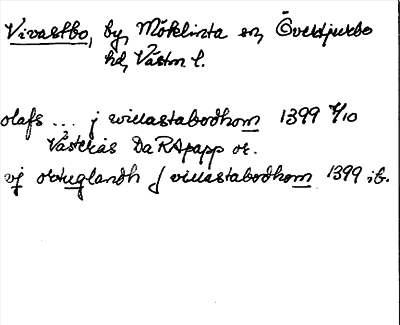 Vivastbo, by, Möklinta sn, Överdjurbo
hd, Västm l.
olafs ... j willastabodhom 1399 4/10
Västerås DaRApapp or.
vj ortuglandh j villastabodhom 1399 ib.